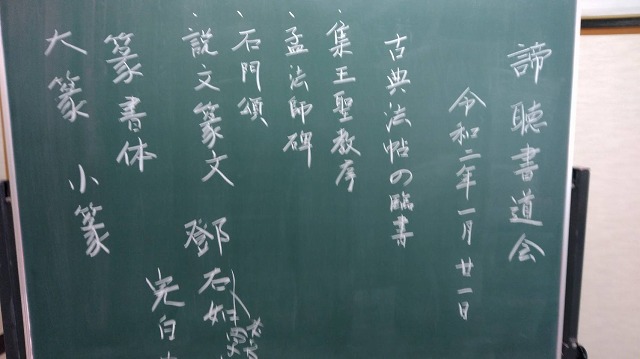 諦聴書道会
令和二年一月廿一日
古典法帖の臨書
、集王聖教序
、孟法師碑
、石門頌
、説文篆文 鄧石如
完白
篆書体
大篆 小篆